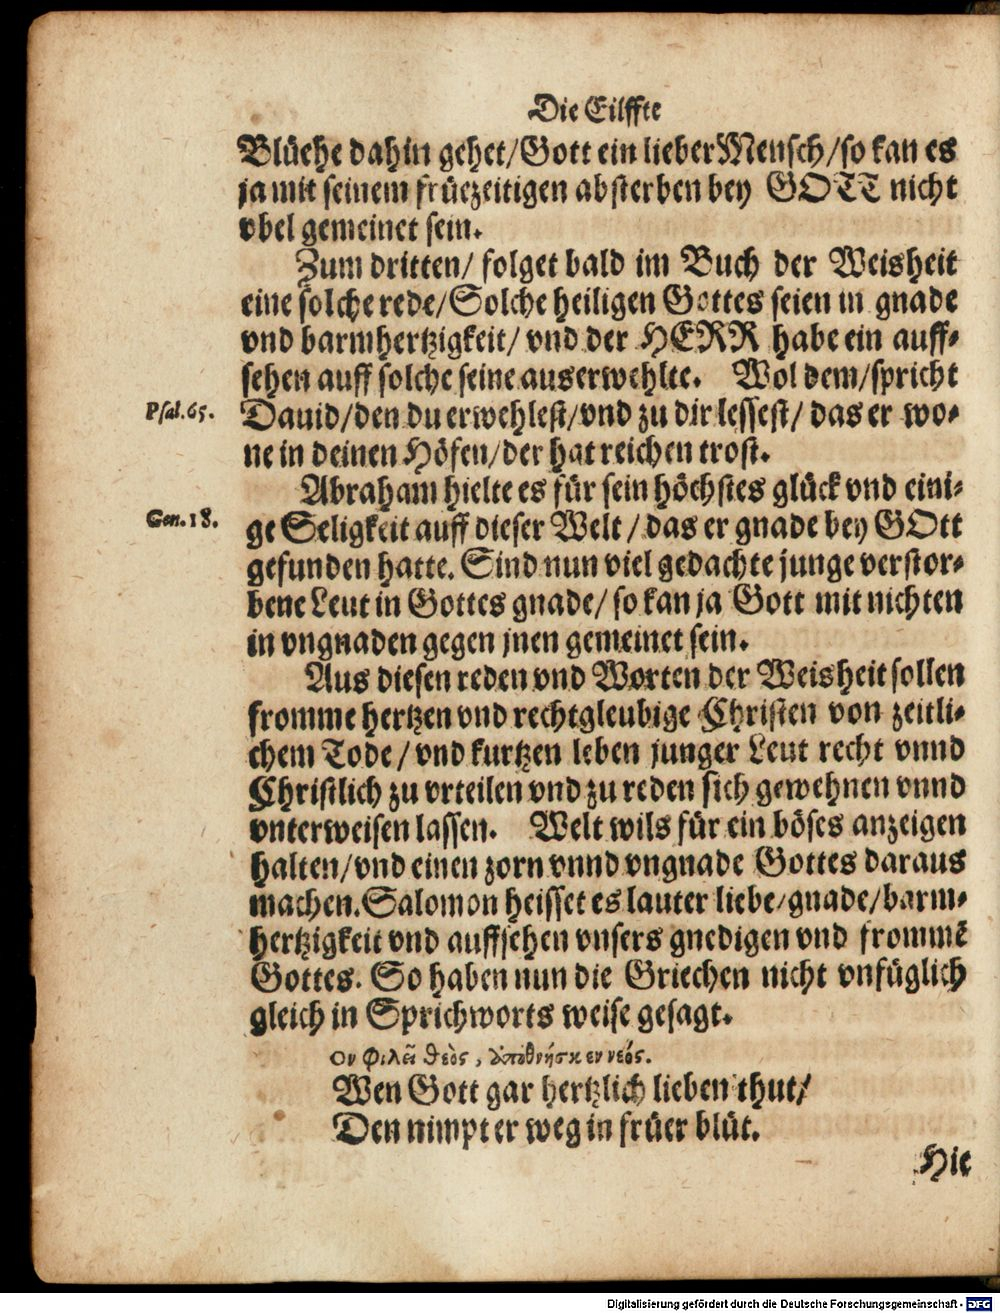 Die Eilffte
Blüehe dahin gehet/Gott ein lieber Mensch/so kan es
ja mit seinem früezeitigen absterben bey GOTT nicht
vbel gemeinet sein.
Zum dritten/ folget bald im Buch der Weisheit
eine solche rede/Solche heiligen Gottes seien in gnade
vnd barmhertzigkeit/ vnd der HERR habe ein auff-
sehen auff solche seine auserwehlte. Wol dem/spricht
Psal.65.
Dauid/den du erwehlest/vnd zu dir lessest/ das er wo-
ne in deinen Höfen/der hat reichen trost.
Abraham hielte es für sein höchstes glück vnd eini-
Gen.18.
ge Seligkeit auff dieser Welt/das er gnade bey GOtt
gefunden hatte. Sind nun viel gedachte junge verstor-
bene Leut in Gottes gnade/ so kan ja Gott mit nichten
in vngnaden gegen jnen gemeinet sein.
Aus diesen reden vnd Worten der Weisheit sollen
fromme hertzen vnd rechtgleubige Christen von zeitli-
chem Tode/ vnd kurtzen leben junger Leut recht vnnd
Christlich zu vrteilen vnd zu reden sich gewehnen vnnd
vnterweisen lassen. Welt wils für ein böses anzeigen
halten/vnd einen zorn vnnd vngnade Gottes daraus
machen. Salomon heisset es lauter liebe/gnade/barm-
hertzigkeit vnd auffsehen vnsers gnedigen vnd frommē
Gottes. So haben nun die Griechen nicht vnfüglich
gleich in Sprichworts weise gesagt.
Ον φιλεῖ θεὸς, ἀποθνήσκει νεός.
Wen Gott gar hertzlich lieben thut/
Den nimpt er weg in früer blüt.
Hie
Digitalisierung gefördert durch die Deutsche Forschungsgemeinschaft - DFG